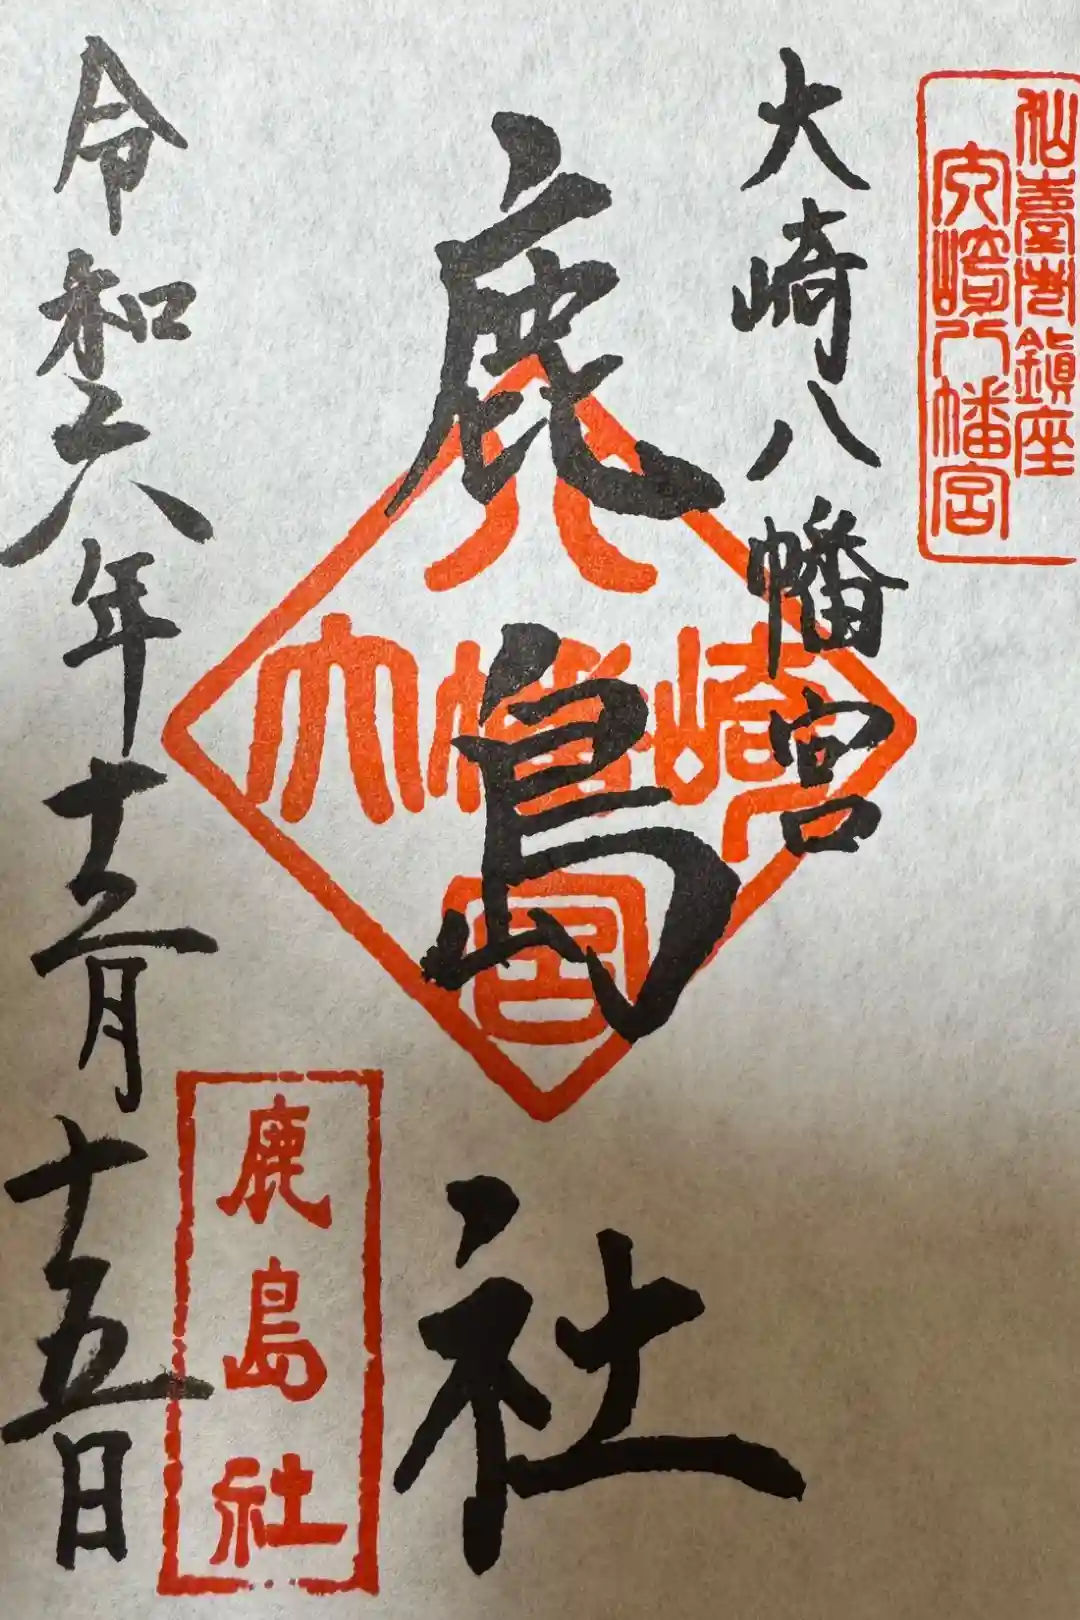 仙臺市鎮座
大崎八幡宮
大崎八幡宮
鹿島社
大崎八幡宮
鹿島社
令和六年十二月十五日